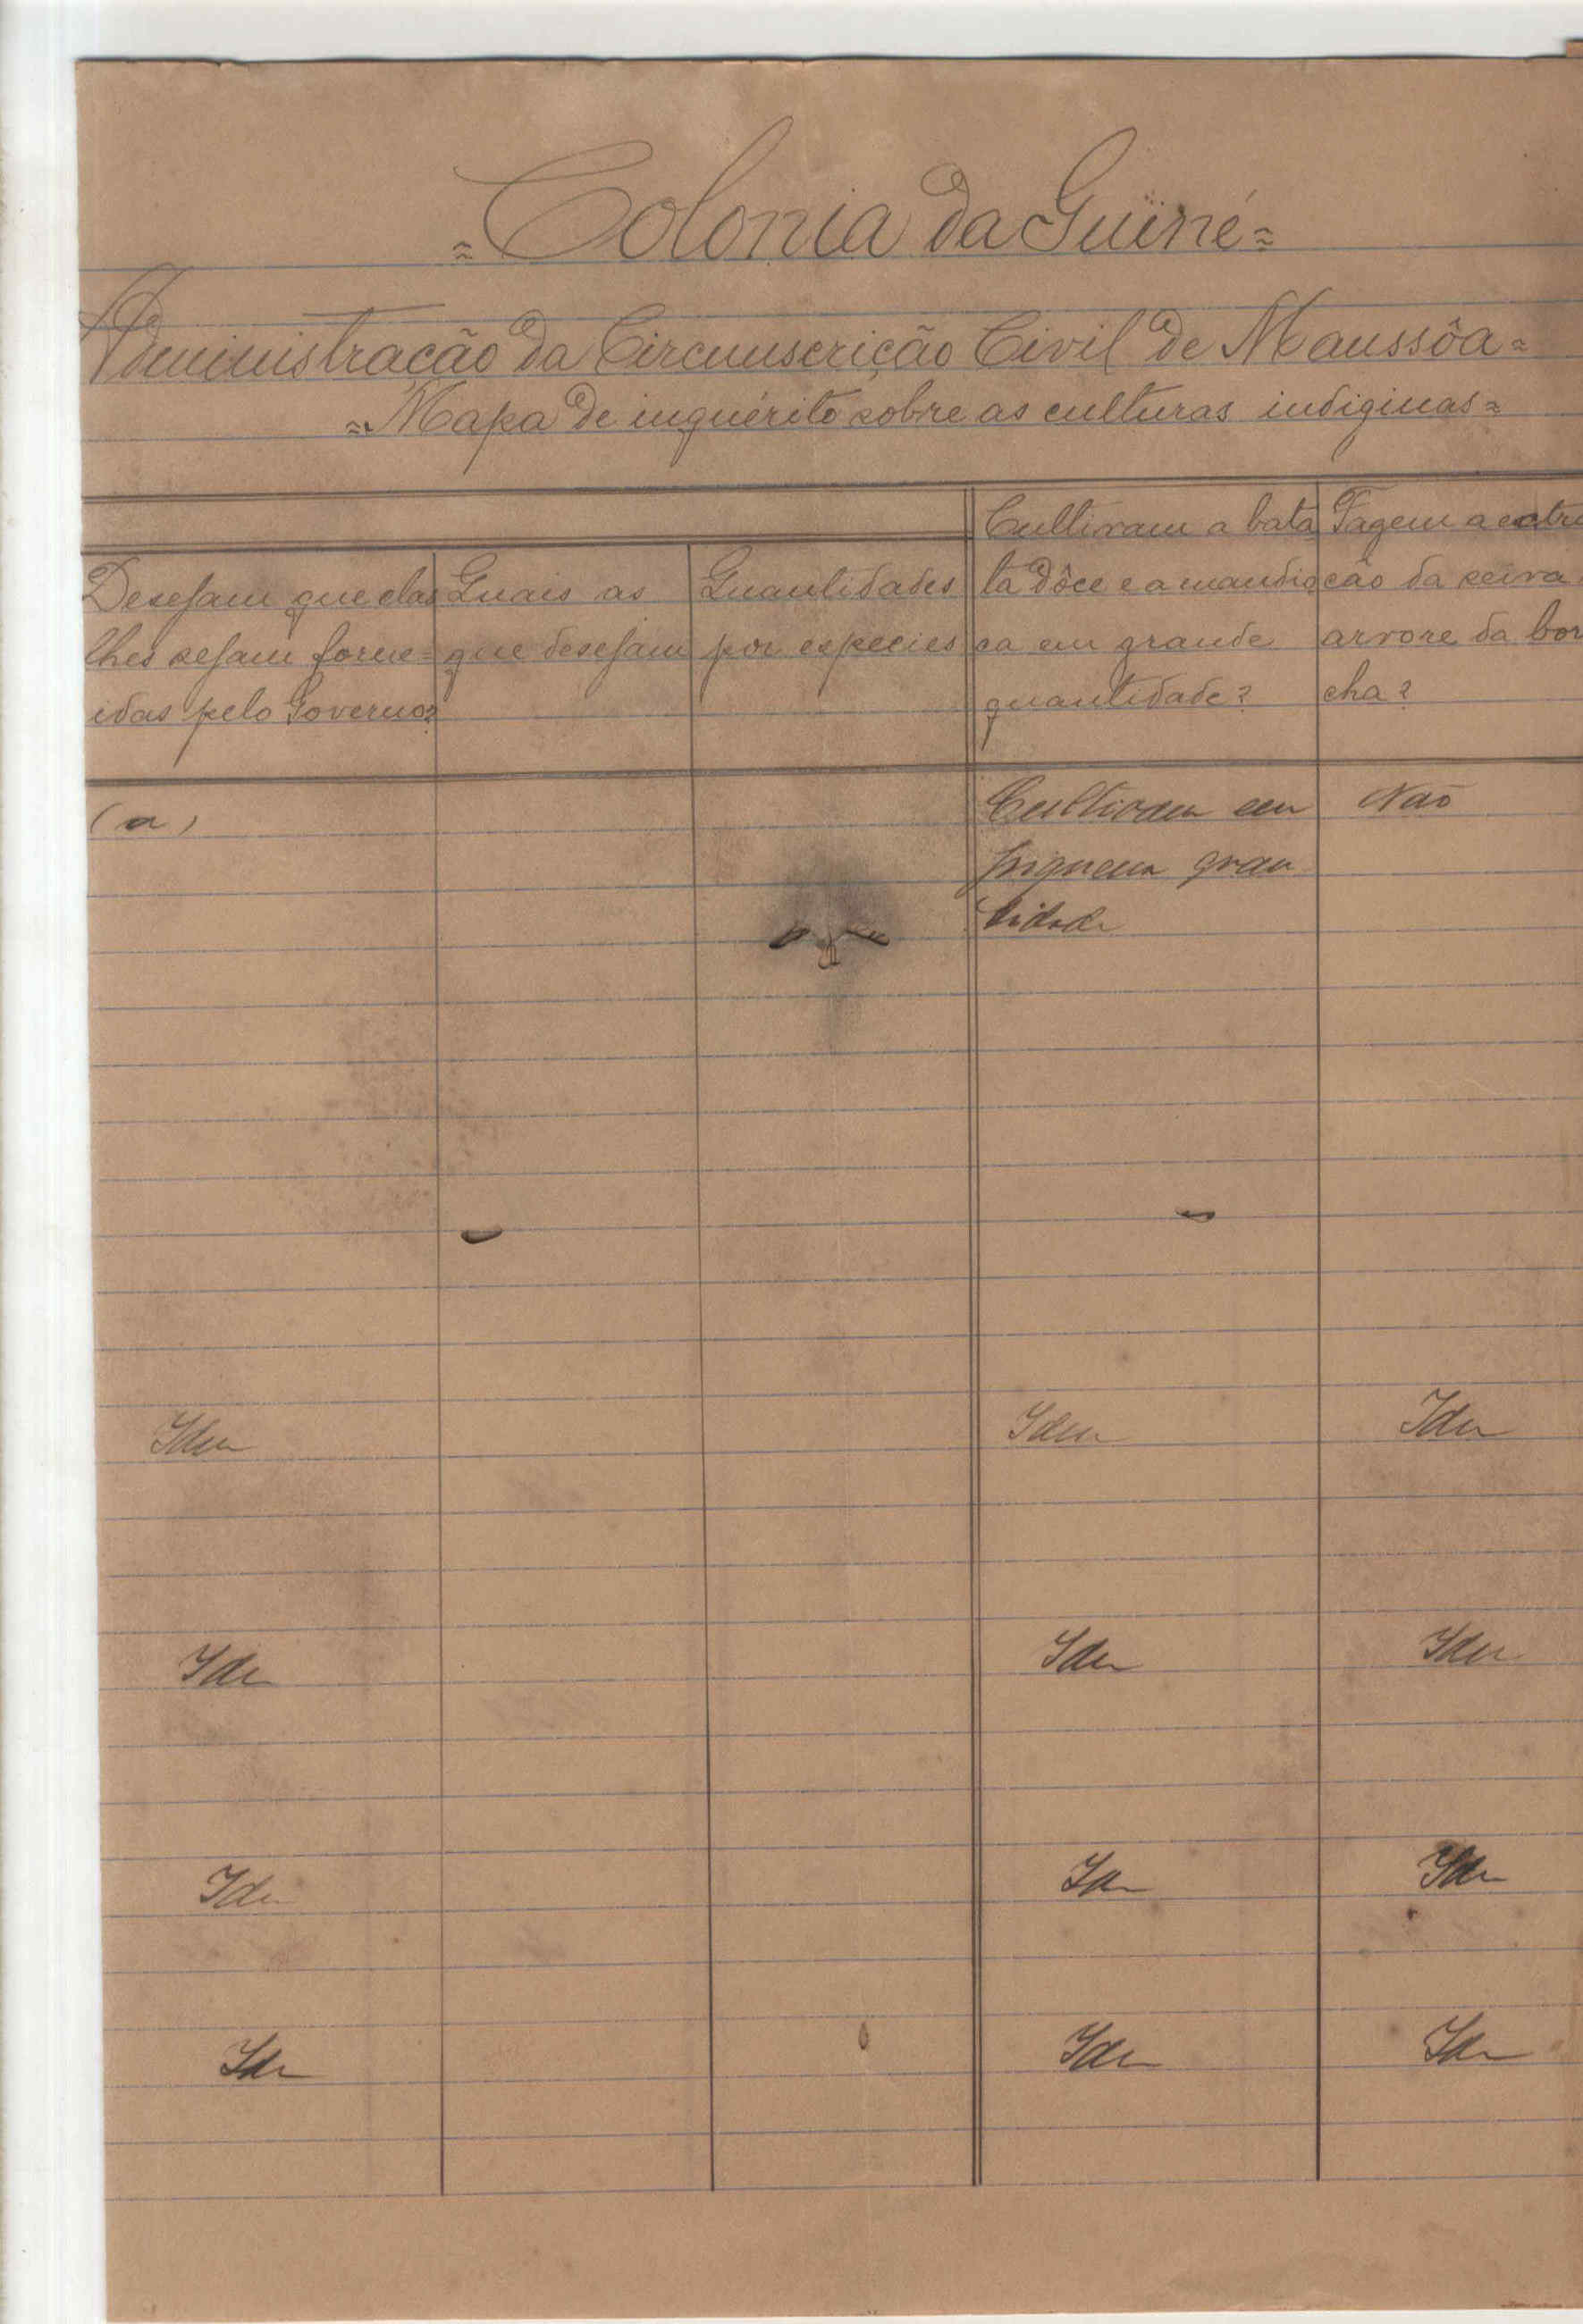 = Colonia da Guiné =
Administração da Circunscrição Civil de Manssôa =
= Mapa de inquérito sobre as culturas indiginas =
Desejam que elas
lhes sejam forne=
idas pelo Governo?
Quais as
que desejam
Quantidades
por especies
Cultivam a bata
ta dôce e a mandio
ca em grande
quantidade?
Fazem a extra
cão da seiva
arvore da bor
cha?
(a)
Cultivam em
piquena quan
tidade
Não
Idem
Idem
Idem
Idem
Idem
Idem
Idem
Idem
Idem
Idem
Idem
Idem